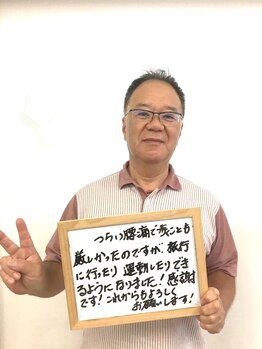 つらい腰痛で歩くことも
厳しかったのですが、旅行
に行ったり運動したりでき
るようになりました！感謝
です！これからもよろしく
お願いします！